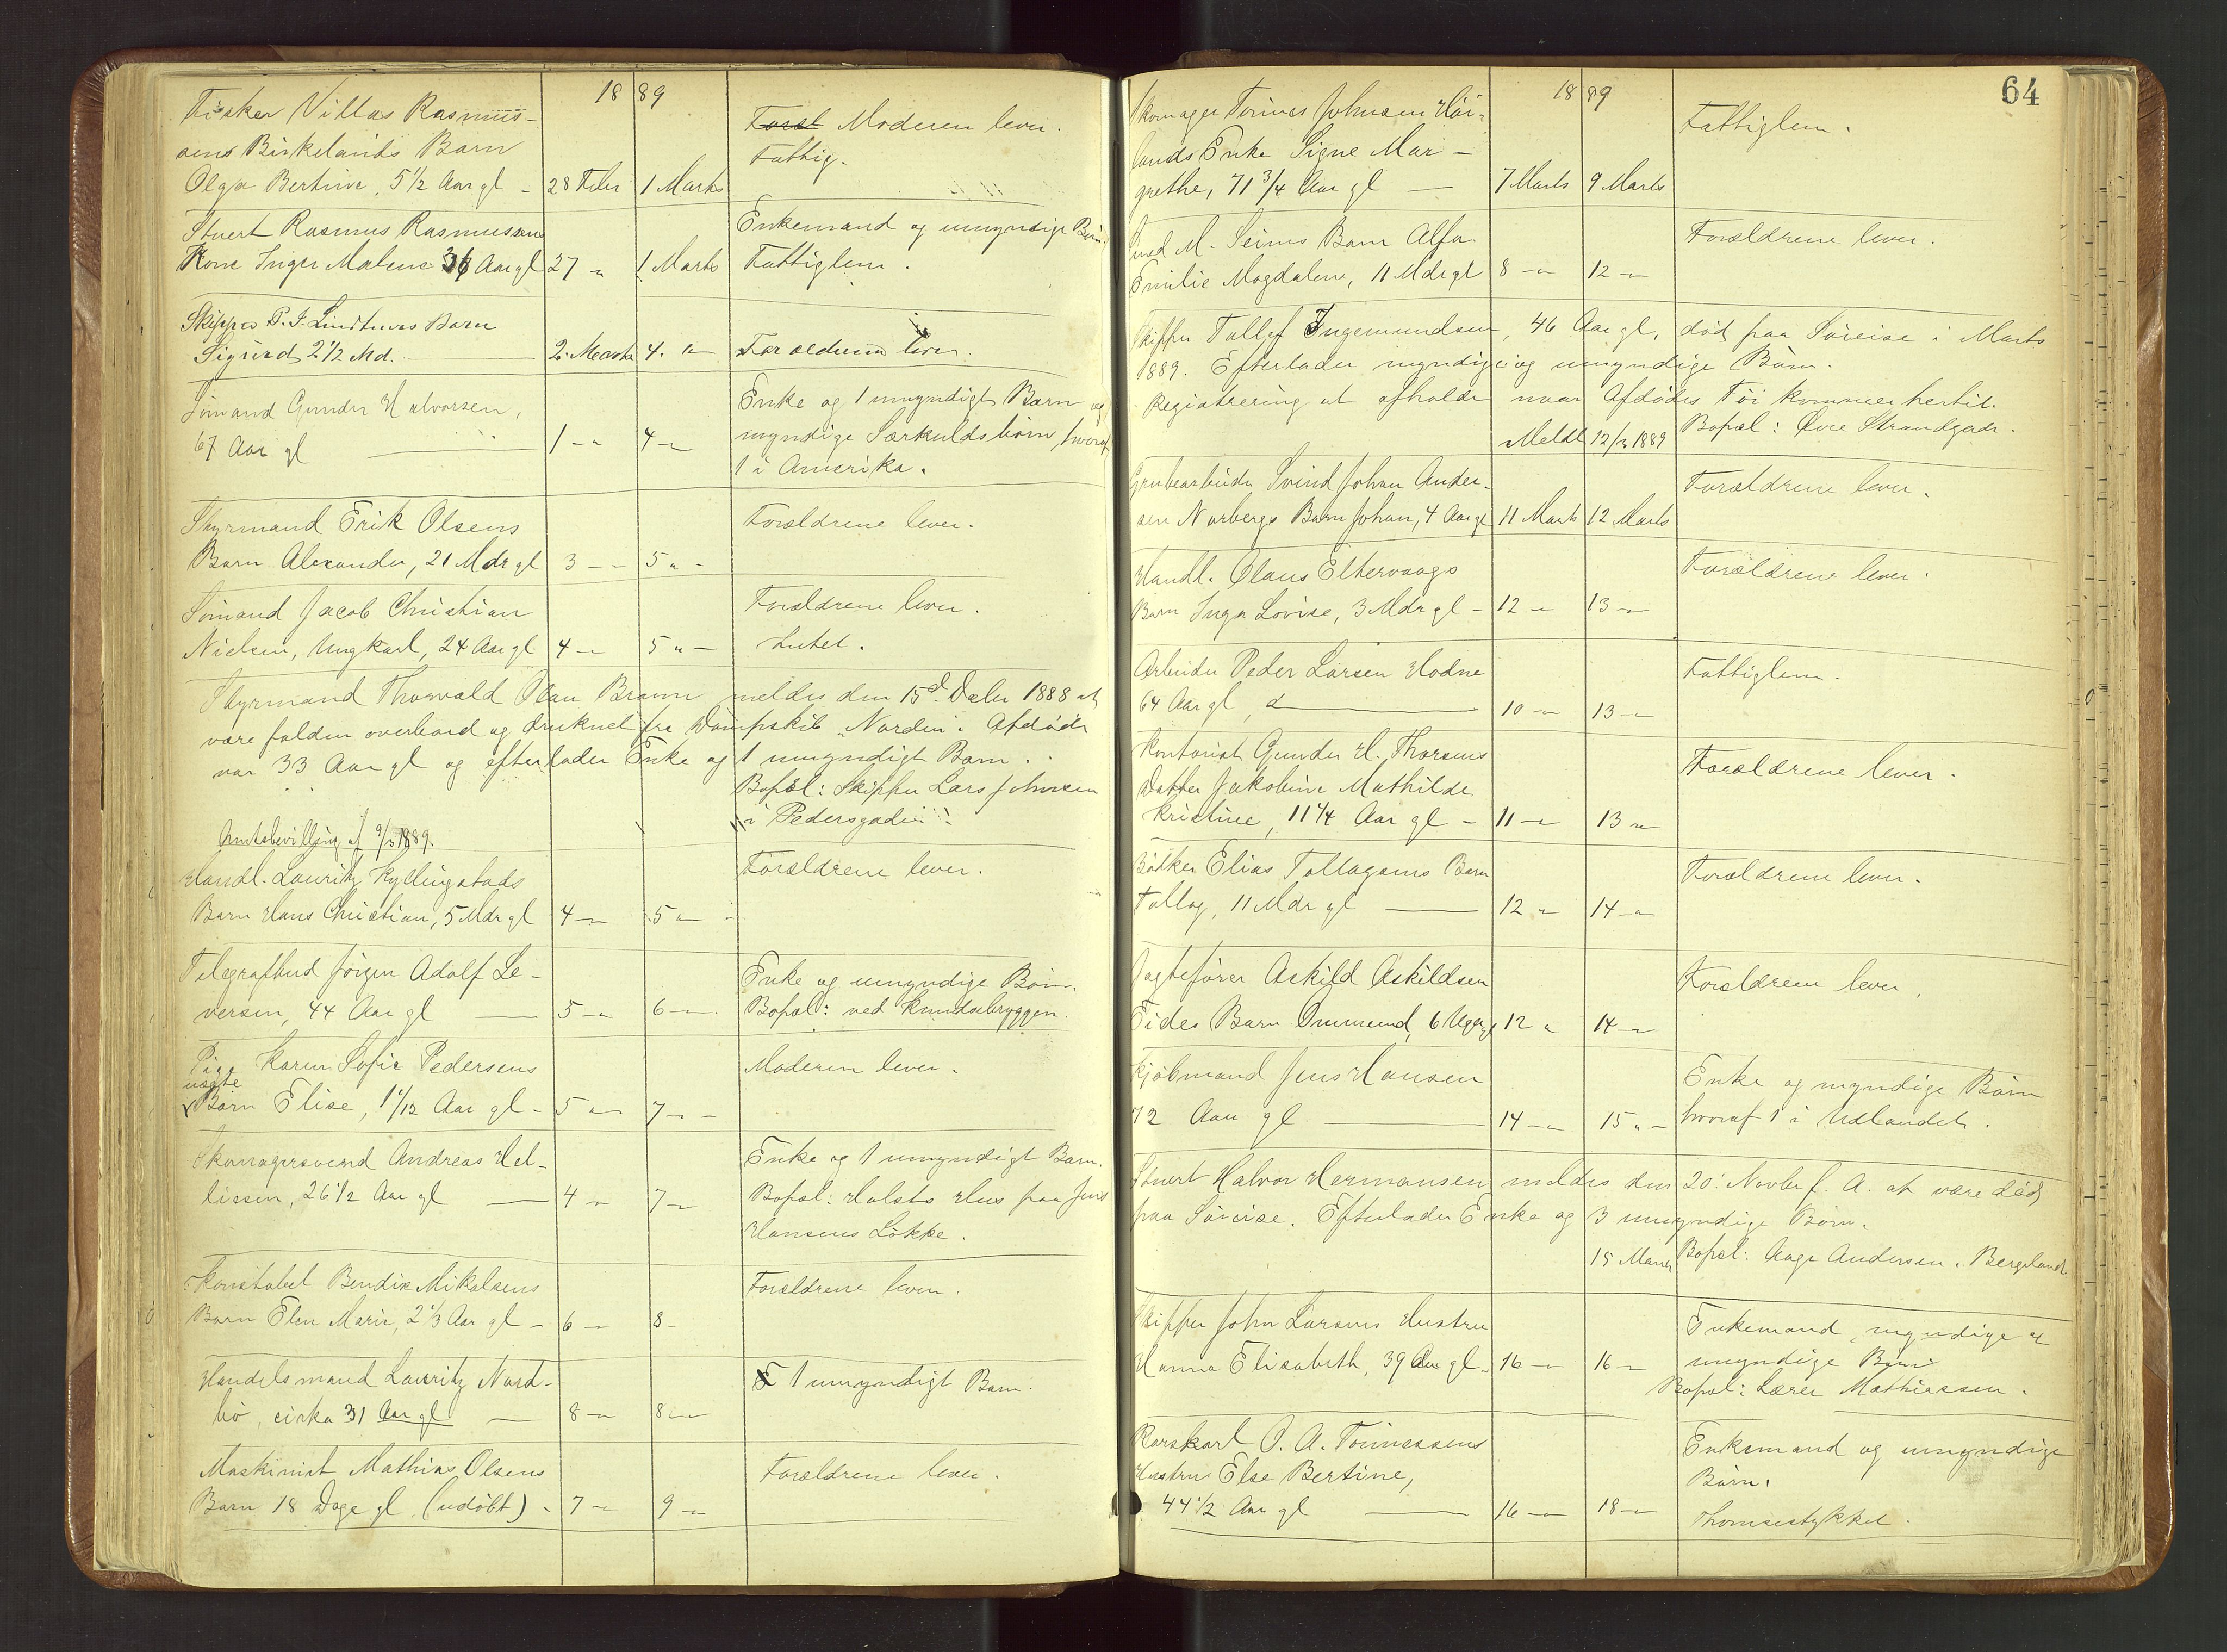 18 89
Fisker Villas Rasmus-
sens Birkelands Barn
Olga Bertine, 5 1/2 Aar gl - 28 Febr 1 Marts
Foræl Moderen lever.
Fattig.
Stuert Rasmus Rasmussens
Kone Inger Malene 36 Aar gl 27 " 1 Marts
Enkemand og umyndige Børn.
Fattiglem.
Skipper P. J. Lindtners Barn
Sigurd 2 1/2 Md. 2. Marts 4. " Forældrene lever.
Sømand Gunder Halvorsen,
67 Aar gl 1 - " 4 - "
Enke og 1 umyndigt Barn og
myndige Særkuldsbørn, hvoraf
1 i Amerika.
Styrmand Erik Olsens
Barn Alexander, 21 Mdr gl 3 - - 5 " -
Forældrene lever.
Sømand Jacob Christian
Nielsen, Ungkarl, 24 Aar gl 4 - " 5 " -
Forældrene lever.
Intet.
Styrmand Thorvald Olau Braun meldes den 15d Decbr 1888 at
være falden overbord og druknet fra Dampskib "Norden". Afdøde
var 33 Aar gl og efterlader Enke og 1 umyndigt Barn.
Bopæl: Skipper Lars Johnsen
i Pedersgaden
Amtsbevilling af 9/3 1889.
Handl. Lauritz Kyllingstads
Barn Hans Christian, 5 Mdr gl 4 - " 5 " -
Forældrene lever.
Telegrafbud Jörgen Adolf Le-
versen, 44 Aar gl 5 - " 6 - "
Enke og umyndige Børn.
Bopæl: ved Knudsebryggen.
Pige Karen Sofie Pedersens
uægte
Barn Elise, 1 1/12 Aar gl - 5 " - 7 - -
Moderen lever.
Skomagersvend Andreas Hel-
liesen, 26 1/2 Aar gl 4 - " 7 - "
Enke og 1 umyndigt Barn.
Bopæl: Holsts Hus paa Jens
Hansens Løkke.
Konstabel Bendix Mikalsens
Barn Elen Marie, 2 1/3 Aar gl - 6 - " 8 -
Forældrene lever.
Handelsmand Lauritz Nord-
bö, cirka 31 Aar gl 8 - " 8 - "
1 umyndigt Barn.
Maskinist Mathias Olsens
Barn 18 Dage gl. (udöbt) - 7 - " 9 - "
Forældrene lever.
64
18 89
Skomager Tönnes Johnsen Höi-
lands Enke Signe Mar-
grethe, 71 3/4 Aar gl 7 Marts 9 Marts
Fattiglem.
Smed M. Seims Barn Alfa
Emilie Magdalene, 11 Mdr gl 8 - " 12 - "
Forældrene lever.
Skipper Tollef Ingemundsen, 46 Aar gl, död paa Söreise i Marts
1889. Efterlader myndige og umyndige Börn.
Registrering at afholde naar Afdödes Töi kommer hertil.
Meldt 12/3 1889 Bopæl: Övre Strandgade.
Grubearbeider Svend Johan Ander-
sen Norbergs Barn Johan, 4 Aar gl 11 Marts 12 Marts
Forældrene lever.
Handl. Olaus Eltervaags
Barn Inga Lovise, 3 Mdr gl - 12 - " 13 - "
Forældrene lever.
Arbeider Peder Larsen Hodne
64 Aar gl 10 - " 13 - "
Fattiglem.
Kontorist Gunder H. Thorsens
Datter Jakobine Mathilde
Kristine, 11 1/4 Aar gl - 11 - " 13 "
Forældrene lever.
Bödker Elias Tollagsens Barn
Tollag, 11 Mdr gl 12 - " 14 - "
Forældrene lever.
Jagtefører Askild Askildsen
Eides Barn Ommund, 6 Uger gl 12 " 14 - "
Forældrene lever.
Kjøbmand Jens Hansen
72 Aar gl 14 - " 15 " -
Enke og myndige Børn
hvoraf 1 i Udlandet.
Stuert Halvor Hermansen meldes den 20. Novbr f. A. at være död
paa Söreise. Efterlader Enke og 3 umyndige Børn.
15 Marts Bopæl: Aage Andersen. Bergeland.
Skipper John Larsens Hustru
Hanna Elisabeth, 39 Aar gl. 16 - " 16 - "
Enkemand, myndige og
umyndige Børn
Bopæl: Lærer Mathiassen.
Karskarl O. A. Tönnessens
Hustru Else Bertine,
44 1/2 Aar gl 16 - " 18 - "
Enkemand og umyndige
Børn.
Thomsestykket.